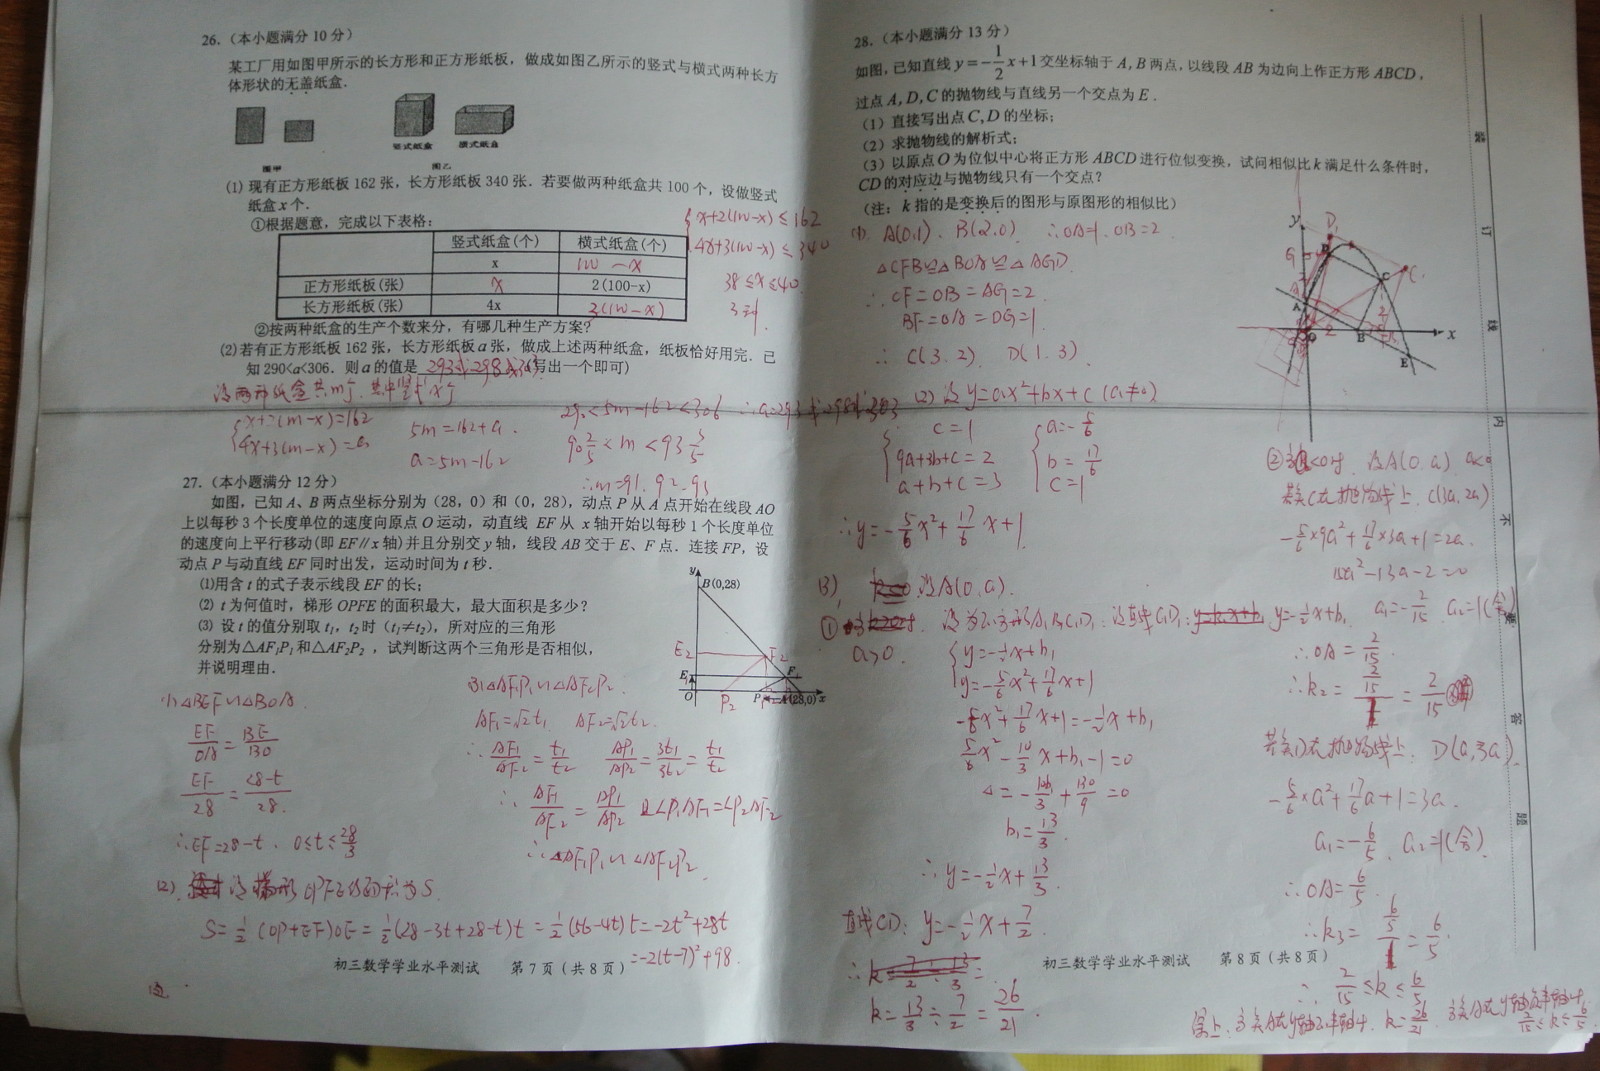 26.（本小题满分 10 分）
某工厂用如图甲所示的长方形和正方形纸板，做成如图乙所示的竖式与横式两种长方
体形状的无盖纸盒．
竖式纸盒 横式纸盒
图甲 图乙
(1) 现有正方形纸板 162 张，长方形纸板 340 张．若要做两种纸盒共 100 个，设做竖式
纸盒 x 个．
x+2(100-x)≤162
4x+3(100-x)≤340
38≤x≤40
3种.
①根据题意，完成以下表格：
竖式纸盒(个) 横式纸盒(个)
x 100-x
正方形纸板(张) x 2(100-x)
长方形纸板(张) 4x 3(100-x)
②按两种纸盒的生产个数来分，有哪几种生产方案？
(2)若有正方形纸板 162 张，长方形纸板 a 张，做成上述两种纸盒，纸板恰好用完．已
知 290<a<306．则 a 的值是 293或298或303 (写出一个即可)
设两种纸盒共m个，其中竖式x个
x+2(m-x)=162
4x+3(m-x)=a
5m=162+a.
a=5m-162
290<5m-162<306 ∴a=293或298或303
90 2/5 < m < 93 3/5
∴m=91. 92. 93
27.（本小题满分 12 分）
如图，已知 A、B 两点坐标分别为（28，0）和（0，28），动点 P 从 A 点开始在线段 AO
上以每秒 3 个长度单位的速度向原点 O 运动，动直线 EF 从 x 轴开始以每秒 1 个长度单位
的速度向上平行移动(即 EF∥x 轴)并且分别交 y 轴，线段 AB 交于 E、F 点．连接 FP，设
动点 P 与动直线 EF 同时出发，运动时间为 t 秒．
(1)用含 t 的式子表示线段 EF 的长；
(2) t 为何值时，梯形 OPFE 的面积最大，最大面积是多少？
(3) 设 t 的值分别取 t₁，t₂ 时（t₁≠t₂），所对应的三角形
分别为△AF₁P₁ 和△AF₂P₂，试判断这两个三角形是否相似，
并说明理由．
y
B(0,28)
E₂ F₂
E₁ F₁
O P₂ P₁ A(28,0) x
(1) △BEF∽△BOA.
EF/OA=BE/BO
EF/28=28-t/28.
∴EF=28-t. 0≤t≤28/3
(3) △AF₁P₁∽△AF₂P₂.
AF₁=√2t₁. AF₂=√2t₂.
∴AF₁/AF₂=t₁/t₂ AP₁/AP₂=3t₁/3t₂=t₁/t₂
∴AF₁/AF₂=AP₁/AP₂ 又∠P₁AF₁=∠P₂AF₂
∴△AF₁P₁∽△AF₂P₂.
(2). 设梯形OPFE的面积为S.
S=1/2(OP+EF)OE=1/2(28-3t+28-t)t=1/2(56-4t)t=-2t²+28t
=-2(t-7)²+98.
初三数学学业水平测试 第 7 页（共 8 页）
28.（本小题满分 13 分）
如图，已知直线 y=-1/2x+1 交坐标轴于 A, B 两点，以线段 AB 为边向上作正方形 ABCD，
过点 A, D, C 的抛物线与直线另一个交点为 E．
（1）直接写出点 C, D 的坐标；
（2）求抛物线的解析式；
（3）以原点 O 为位似中心将正方形 ABCD 进行位似变换，试问相似比 k 满足什么条件时，
CD 的对应边与抛物线只有一个交点？
（注：k 指的是变换后的图形与原图形的相似比）
(1). A(0,1). B(2,0). ∴OA=1. OB=2.
△CFB≌△BOA≌△AGD.
∴CF=OB=AG=2.
BF=OA=DG=1.
∴C(3,2). D(1,3).
y
D₁
G D
C C₁
A
O B F x
E
(2) 设y=ax²+bx+c (a≠0)
c=1
9a+3b+c=2
a+b+c=3
a=-5/6
b=17/6
c=1
∴y=-5/6x²+17/6x+1
(3), 设A(0,a).
①
a>0.
y=-1/2x+b₁
y=-1/2x+b₁
y=-5/6x²+17/6x+1
-5/6x²+17/6x+1=-1/2x+b₁
5/6x²-10/3x+b₁-1=0
△=-10b₁/3+130/9=0
b₁=13/3.
∴y=-1/2x+13/3.
直线CD: y=-1/2x+7/2.
k=13/3÷7/2=26/21.
②当k<0时. 设A(0,a). a<0
若点C在抛物线上. C(3a,2a)
-5/6×9a²+17/6×3a+1=2a.
15a²-13a-2=0
a₁=-2/15. a₂=1(舍)
∴OA=2/15.
∴k₂=2/15/1=2/15
若点D在抛物线上. D(a,3a).
-5/6×a²+17/6a+1=3a.
a₁=-6/5. a₂=1(舍).
∴OA=6/5.
∴k₃=6/5/1=6/5
∴2/15≤k≤6/5
初三数学学业水平测试 第 8 页（共 8 页）
装
订
线
内
不
要
答
题